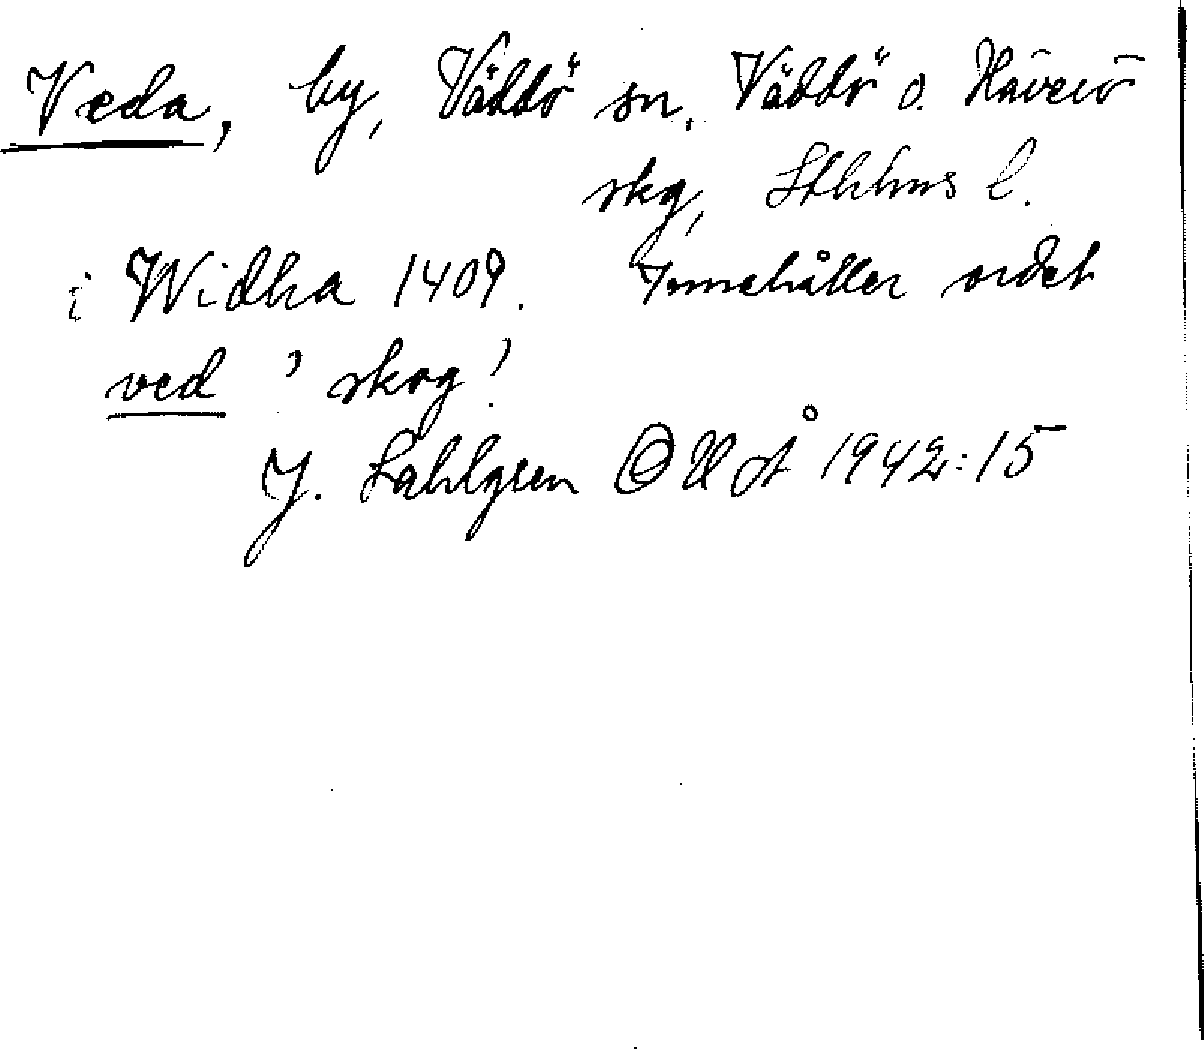 Veda, by, Väddö sn, Väddö o. Häverö
skg, Sthlms l.
i Widha 1409. Innehåller ordet
ved 'skog'.
J. Sahlgren OUÅ 1942:15